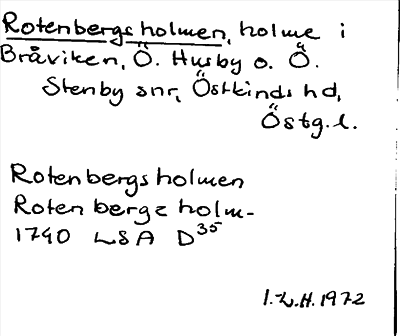 Rotenbergsholmen, holme i
Bråviken, Ö. Husby o. Ö.
Stenby snr, Östkinds hd,
Östg.l.
Rotenbergsholmen
Rotenbergz holm-
1740 LSA D35
I.L.H. 1972